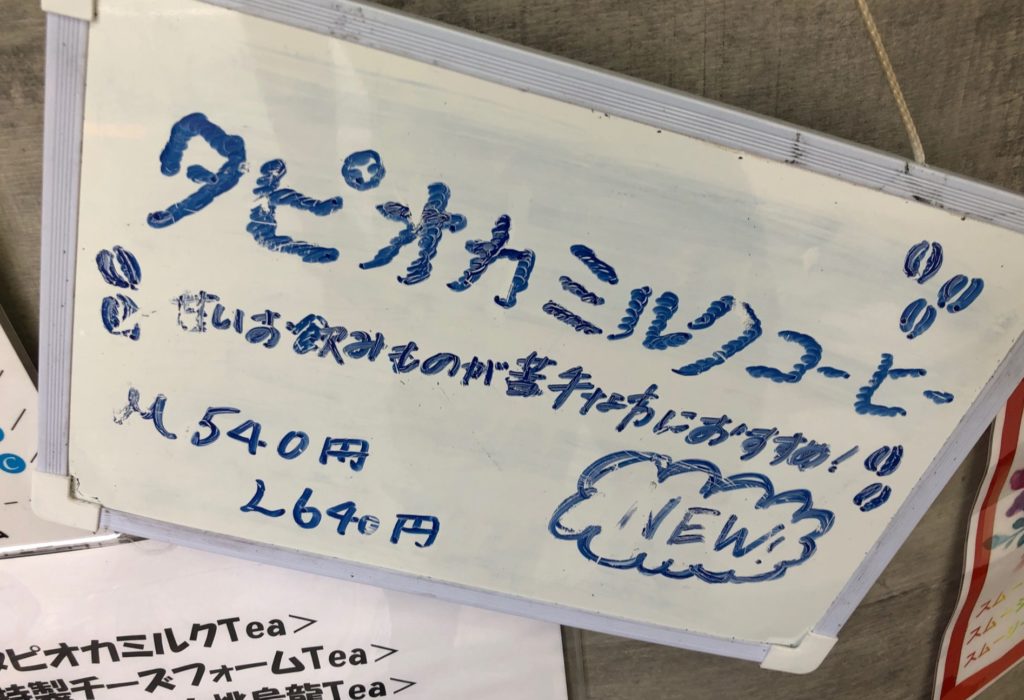 タピオカミルクコーヒー
甘いお飲みものが苦手な方におすすめ!
M 540円
L 640円
NEW!
タピオカミルクTea>
特製チーズフォームTea>
桃烏龍Tea>
スム
スム
スム